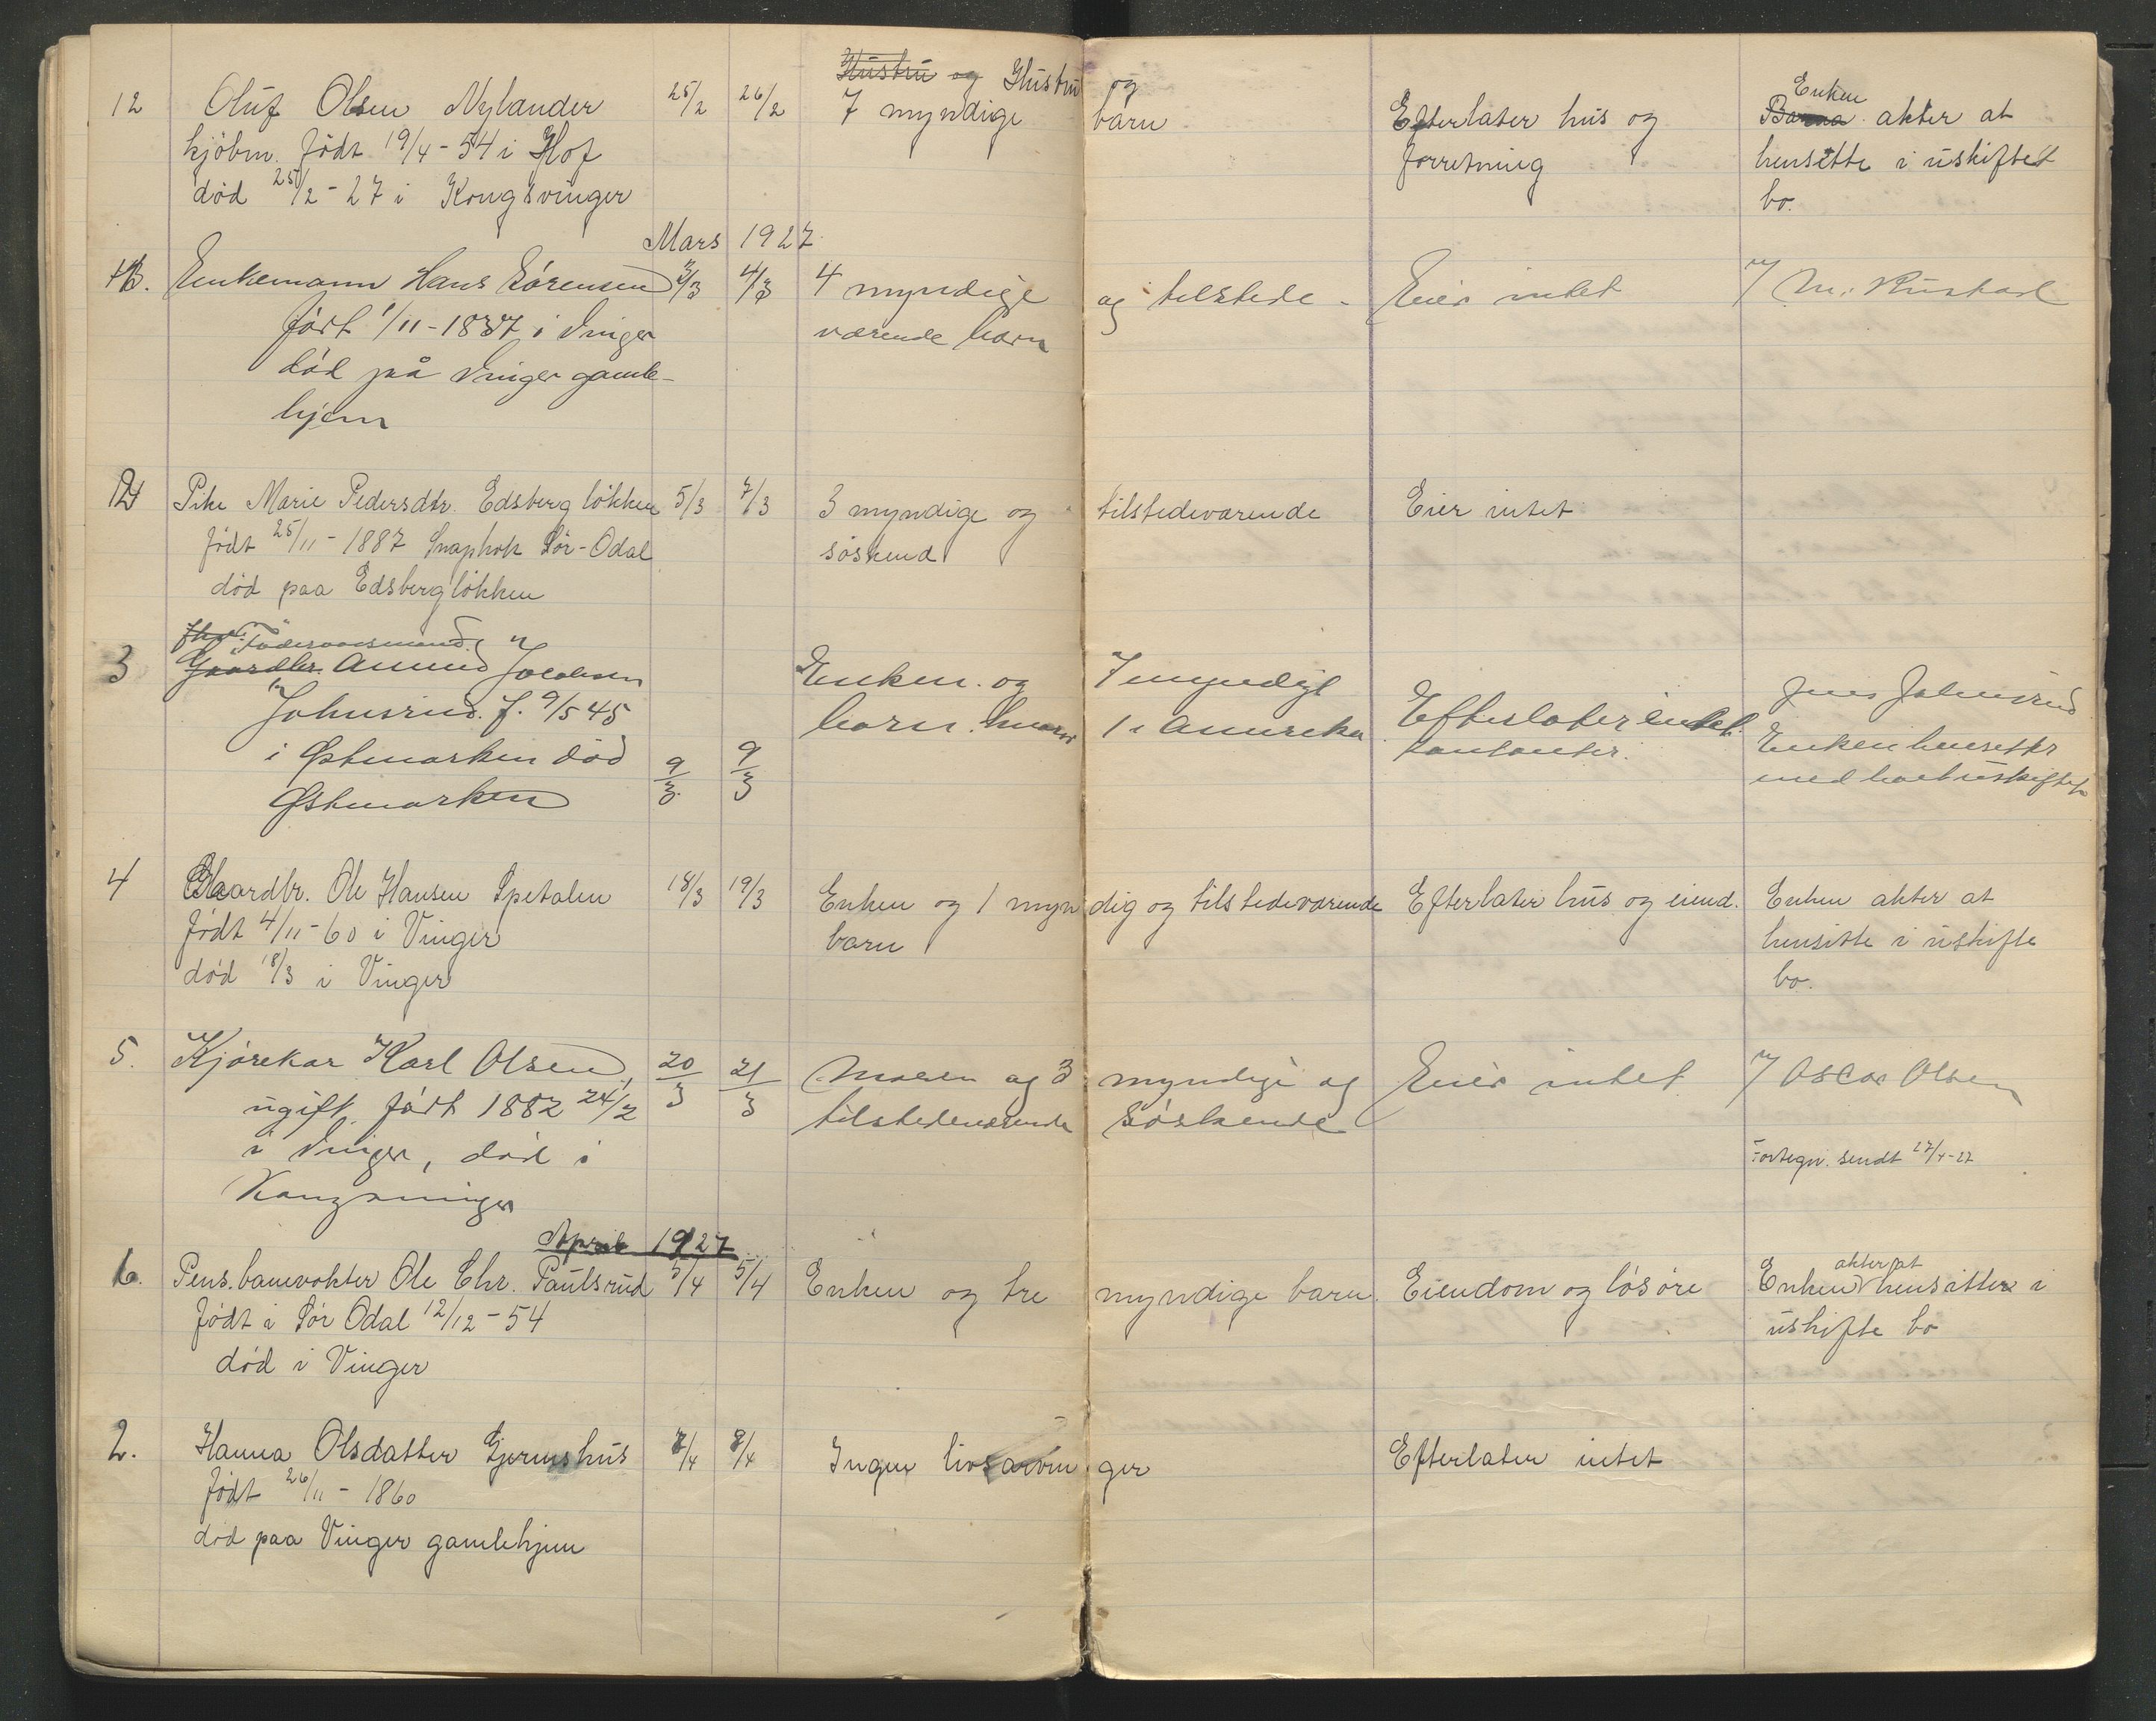 12 Oluf Olsen Nylander 25/2 26/2 Hustru og Hustru og Efterlater hus og Enken
kjöbm. født 19/4-54 i Hof 7 myndige barn forretning Barna akter at
død 25/2-27 i Kongsvinger hensitte i uskiftet
bo.
Mars 1927
1. Enkemann Hans Sörensen 3/3 4/3 4 myndige og tilstede- Eier intet
født 1/11-1837 i Vinger værende barn
död på Vinger gamle-
hjem
2 Pike Marie Pedersdtr. Edsberg lökken 5/3 7/3 3 myndige og tilstedeværende Eier intet
født 25/11-1887 Sør-Odal søskend
død paa Edsbergløkken
Föderaadsmand
3 Gaardbr. Amund Jocobsen Enken og 7 myndige Efterlater intet Jens Johnsrud
Johnsrud. f. 9/5 45 barn. hvorav 1 i Amerika kontanter. Enken hensitter
i Østmarken död 9/3 9/3 med boet uskiftet
Østmarken
4 Gaardbr. Ole Hansen Spetalen 18/3 19/3 Enken og 1 myndig og tilstedeværende Efterlater hus og eiend. Enken akter at
født 4/11-60 i Vinger barn hensitte i uskifte
död 18/3 i Vinger bo.
5. Kjörekar Karl Olsen, 20/3 21/3 Moren og 3 myndige og Eier intet Oscar Olsen
ugift, født 1882 24/2 tilstedeværende Söskende
i Vinger, död i Fortegn. sendt 27/4-27
Kongsvinger
April 1927
1. Pens. banevokter Ole Chr. Paulsrud 5/4 5/4 Enken og tre myndige barn. Eiendom og løsøre Enken akter at hensitte i
født i Sör Odal 12/12-54 uskifte bo
død i Vinger
2. Hanna Olsdatter Gjermshus 7/4 8/4 Ingen livsarvinger Efterlater intet
født 26/11-1860
død paa Vinger gamlehjem